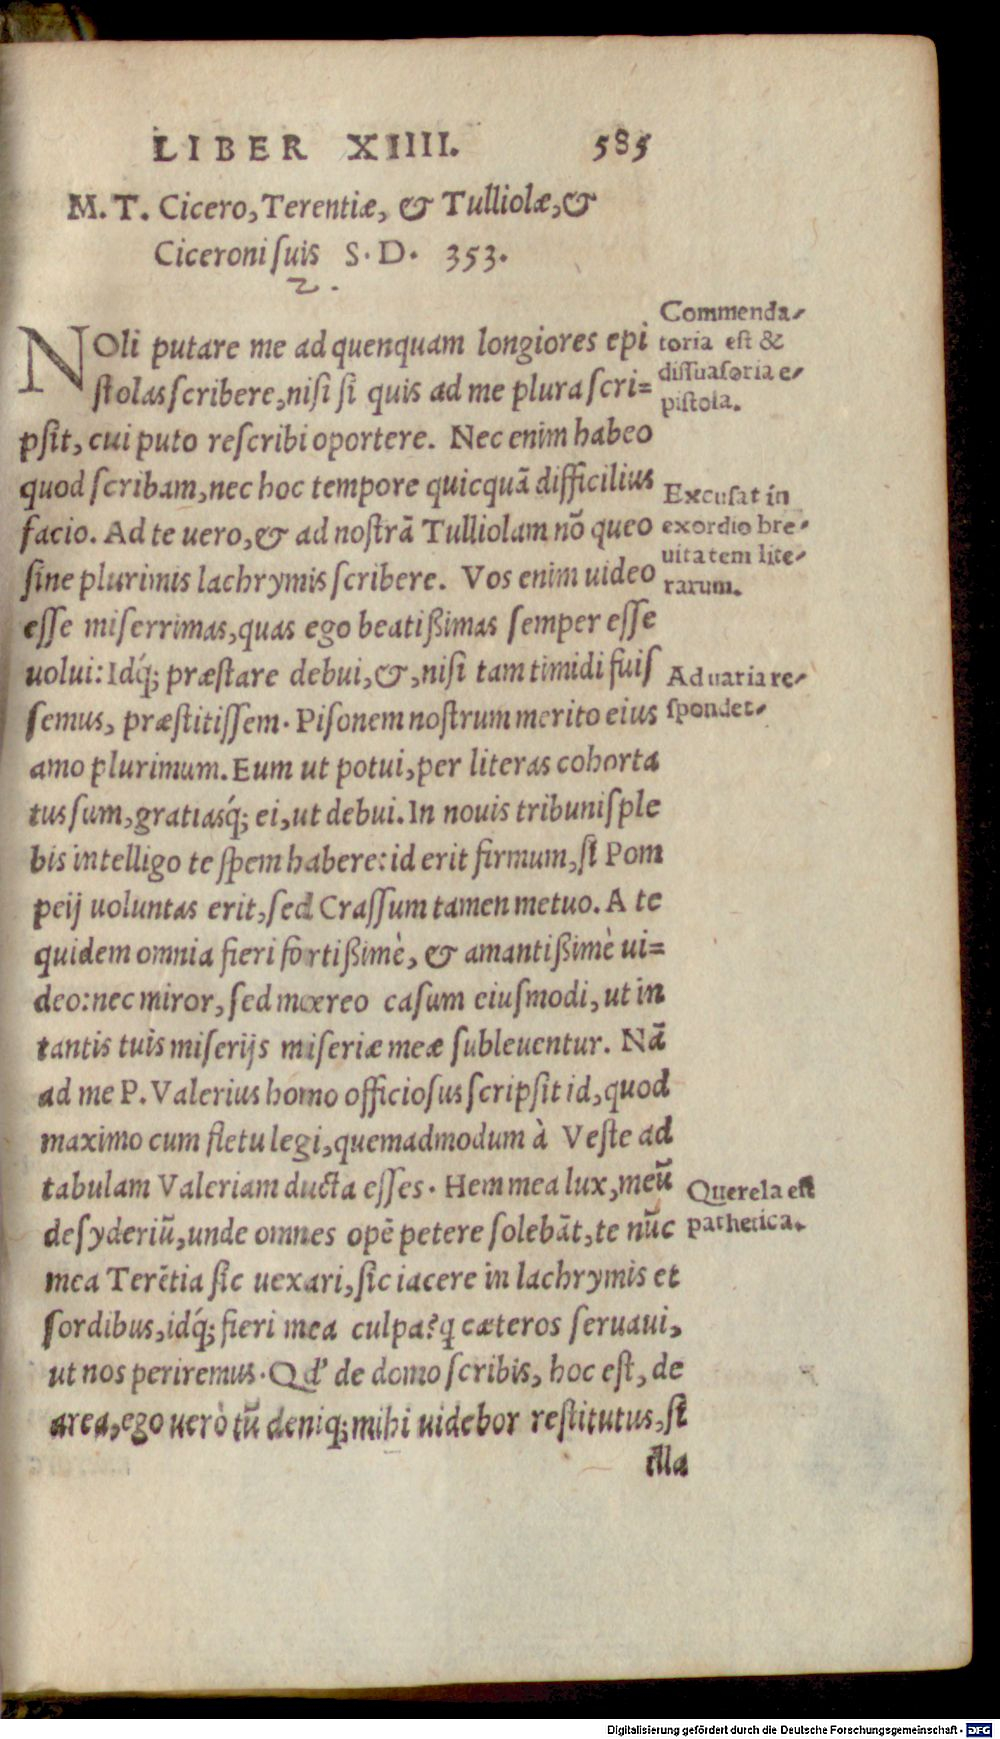 LIBER XIIII. 585
M. T. Cicero, Terentiæ, & Tulliolæ, &
Ciceroni suis S. D. 353.
2.
NOli putare me ad quenquam longiores epi
stolas scribere, nisi si quis ad me plura scri=
psit, cui puto rescribi oportere. Nec enim habeo
quod scribam, nec hoc tempore quicquā difficilius
facio. Ad te uero, & ad nostrā Tulliolam nō queo
sine plurimis lachrymis scribere. Vos enim uideo
esse miserrimas, quas ego beatißimas semper esse
uolui: Idq́; præstare debui, &, nisi tam timidi fuis
semus, præstitissem. Pisonem nostrum merito eius
amo plurimum. Eum ut potui, per literas cohorta
tus sum, gratiasq́; ei, ut debui. In nouis tribunis ple
bis intelligo te spem habere: id erit firmum, si Pom
peij uoluntas erit, sed Crassum tamen metuo. A te
quidem omnia fieri fortißimè, & amantißimè ui=
deo: nec miror, sed mœreo casum eiusmodi, ut in
tantis tuis miserijs miseriæ meæ subleuentur. Nā
ad me P. Valerius homo officiosus scripsit id, quod
maximo cum fletu legi, quemadmodum à Veste ad
tabulam Valeriam ducta esses. Hem mea lux, meū
desyderiū, unde omnes opē petere solebāt, te nūc
mea Terētia sic uexari, sic iacere in lachrymis et
sordibus, idq́; fieri mea culpa? q cæteros seruaui,
ut nos periremus. Qd' de domo scribis, hoc est, de
area, ego uerò tū deniq; mihi uidebor restitutus, si
illa
Commenda-
toria est &
dissuasoria e-
pistola.
Excusat in
exordio bre-
uitatem lite-
rarum.
Ad uaria re-
spondet.
Querela est
pathetica.
Digitalisierung gefördert durch die Deutsche Forschungsgemeinschaft - DFG